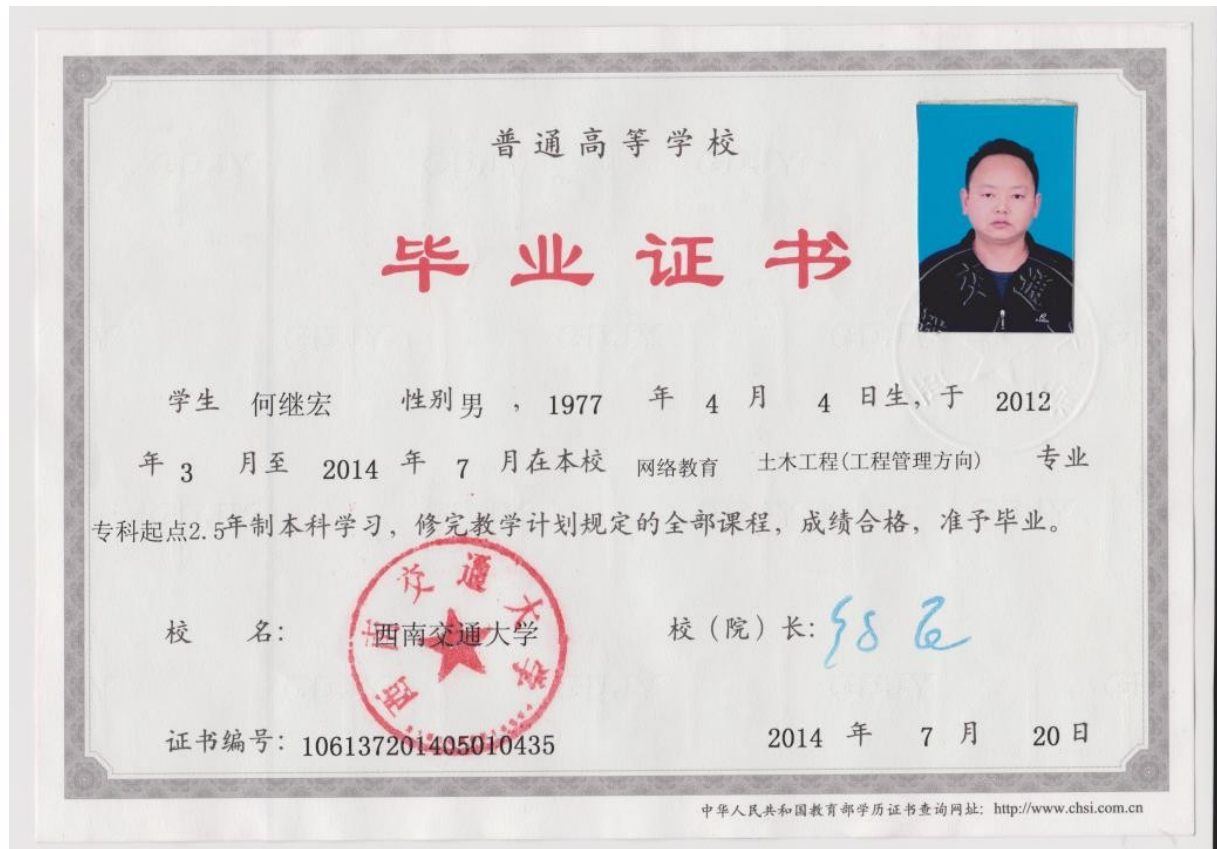 普通高等学校
毕业证书
学生 何继宏 性别 男 ， 1977 年 4 月 4 日生，于 2012
年 3 月至 2014 年 7 月在本校 网络教育 土木工程(工程管理方向) 专业
专科起点2.5年制本科学习，修完教学计划规定的全部课程，成绩合格，准予毕业。
西南交通大学
校 名： 西南交通大学 校（院）长：
证书编号：106137201405010435 2014 年 7 月 20 日
中华人民共和国教育部学历证书查询网址：http://www.chsi.com.cn